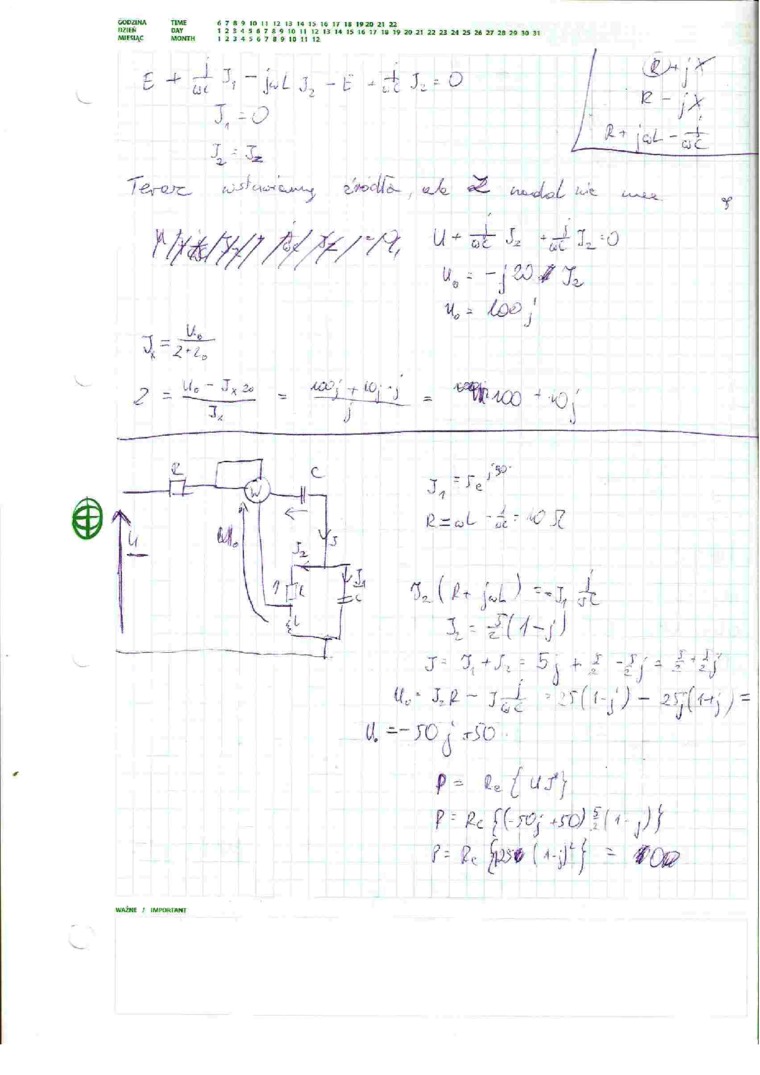 GODZINA TIME 6 7 8 9 10 11 12 13 14 15 16 17 18 19 20 21 22
DZIEŃ DAY 1 2 3 4 5 6 7 8 9 10 11 12 13 14 15 16 17 18 19 20 21 22 23 24 25 26 27 28 29 30 31
MIESIĄC MONTH 1 2 3 4 5 6 7 8 9 10 11 12
E + j/ωC J₁ - jωL J₂ - E + j/ωC J₂ = 0
J₁ = 0
J₂ = J_Z
R + jX
R - jX
R + jωL - j/ωC
Teraz wstawiamy źródła, ale Z nadal nie ma
U + j/ωC J₂ + j/ωC J₂ = 0
U₀ = -j20 J₂
U₀ = 100j
Jₓ = U₀/Z+Z₀
Z = U₀ - Jₓ Z₀/Jₓ = 100j + 10j·j/j = 100 + 10j
R
W
C
U
J
J₂
J₁
R
L
C
J₁ = 5e^j90°
R = ωL = 1/ωC = 10 Ω
J₂(R + jωL) = -J₁ j/ωC
J₂ = 5/2(1-j)
J = J₁ + J₂ = 5j + 5/2 - 5/2j = 5/2 + 5/2j
U₀ = J₂R - J j/ωC = 25(1-j) - 25j(1+j) =
U₀ = -50j + 50
P = Re{UJ*}
P = Re{(-50j + 50) 5/2(1-j)}
P = Re{125(1-j)²} =
WAŻNE / IMPORTANT